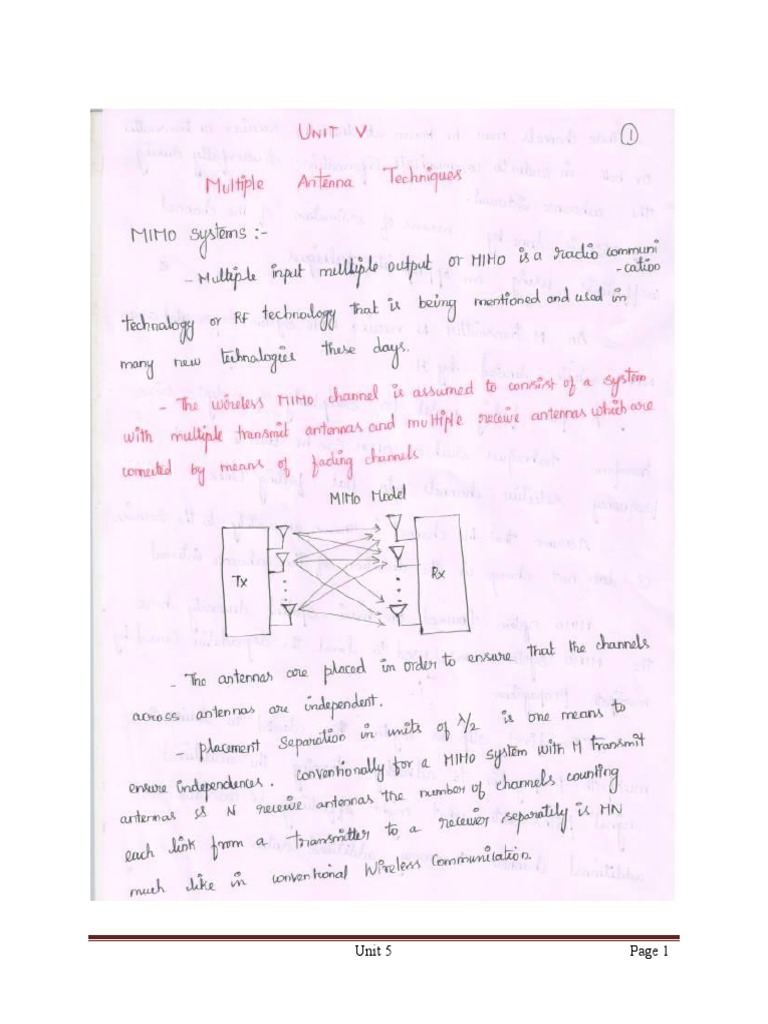 UNIT V
1
Multiple Antenna Techniques
MIMO systems :-
- Multiple input mulltiple output or MIMO is a radio communi
-cation
technology or RF technology that is being mentioned and used in
many new technologies these days.
- The wireless MIMO channel is assumed to consist of a system
with multiple transmit antennas and multiple receive antennas which are
connected by means of fading channels
MIMO Model
Tx
Rx
- The antennas are placed in order to ensure that the channels
across antennas are independent.
- placement Separation in units of λ/2 is one means to
ensure independences. conventionally for a MIMO system with M transmit
antennas is N receive antennas the number of channels, counting
each link from a transmitter to a receiver, separately is MN
much like in conventional Wireless Communication.
Unit 5
Page 1